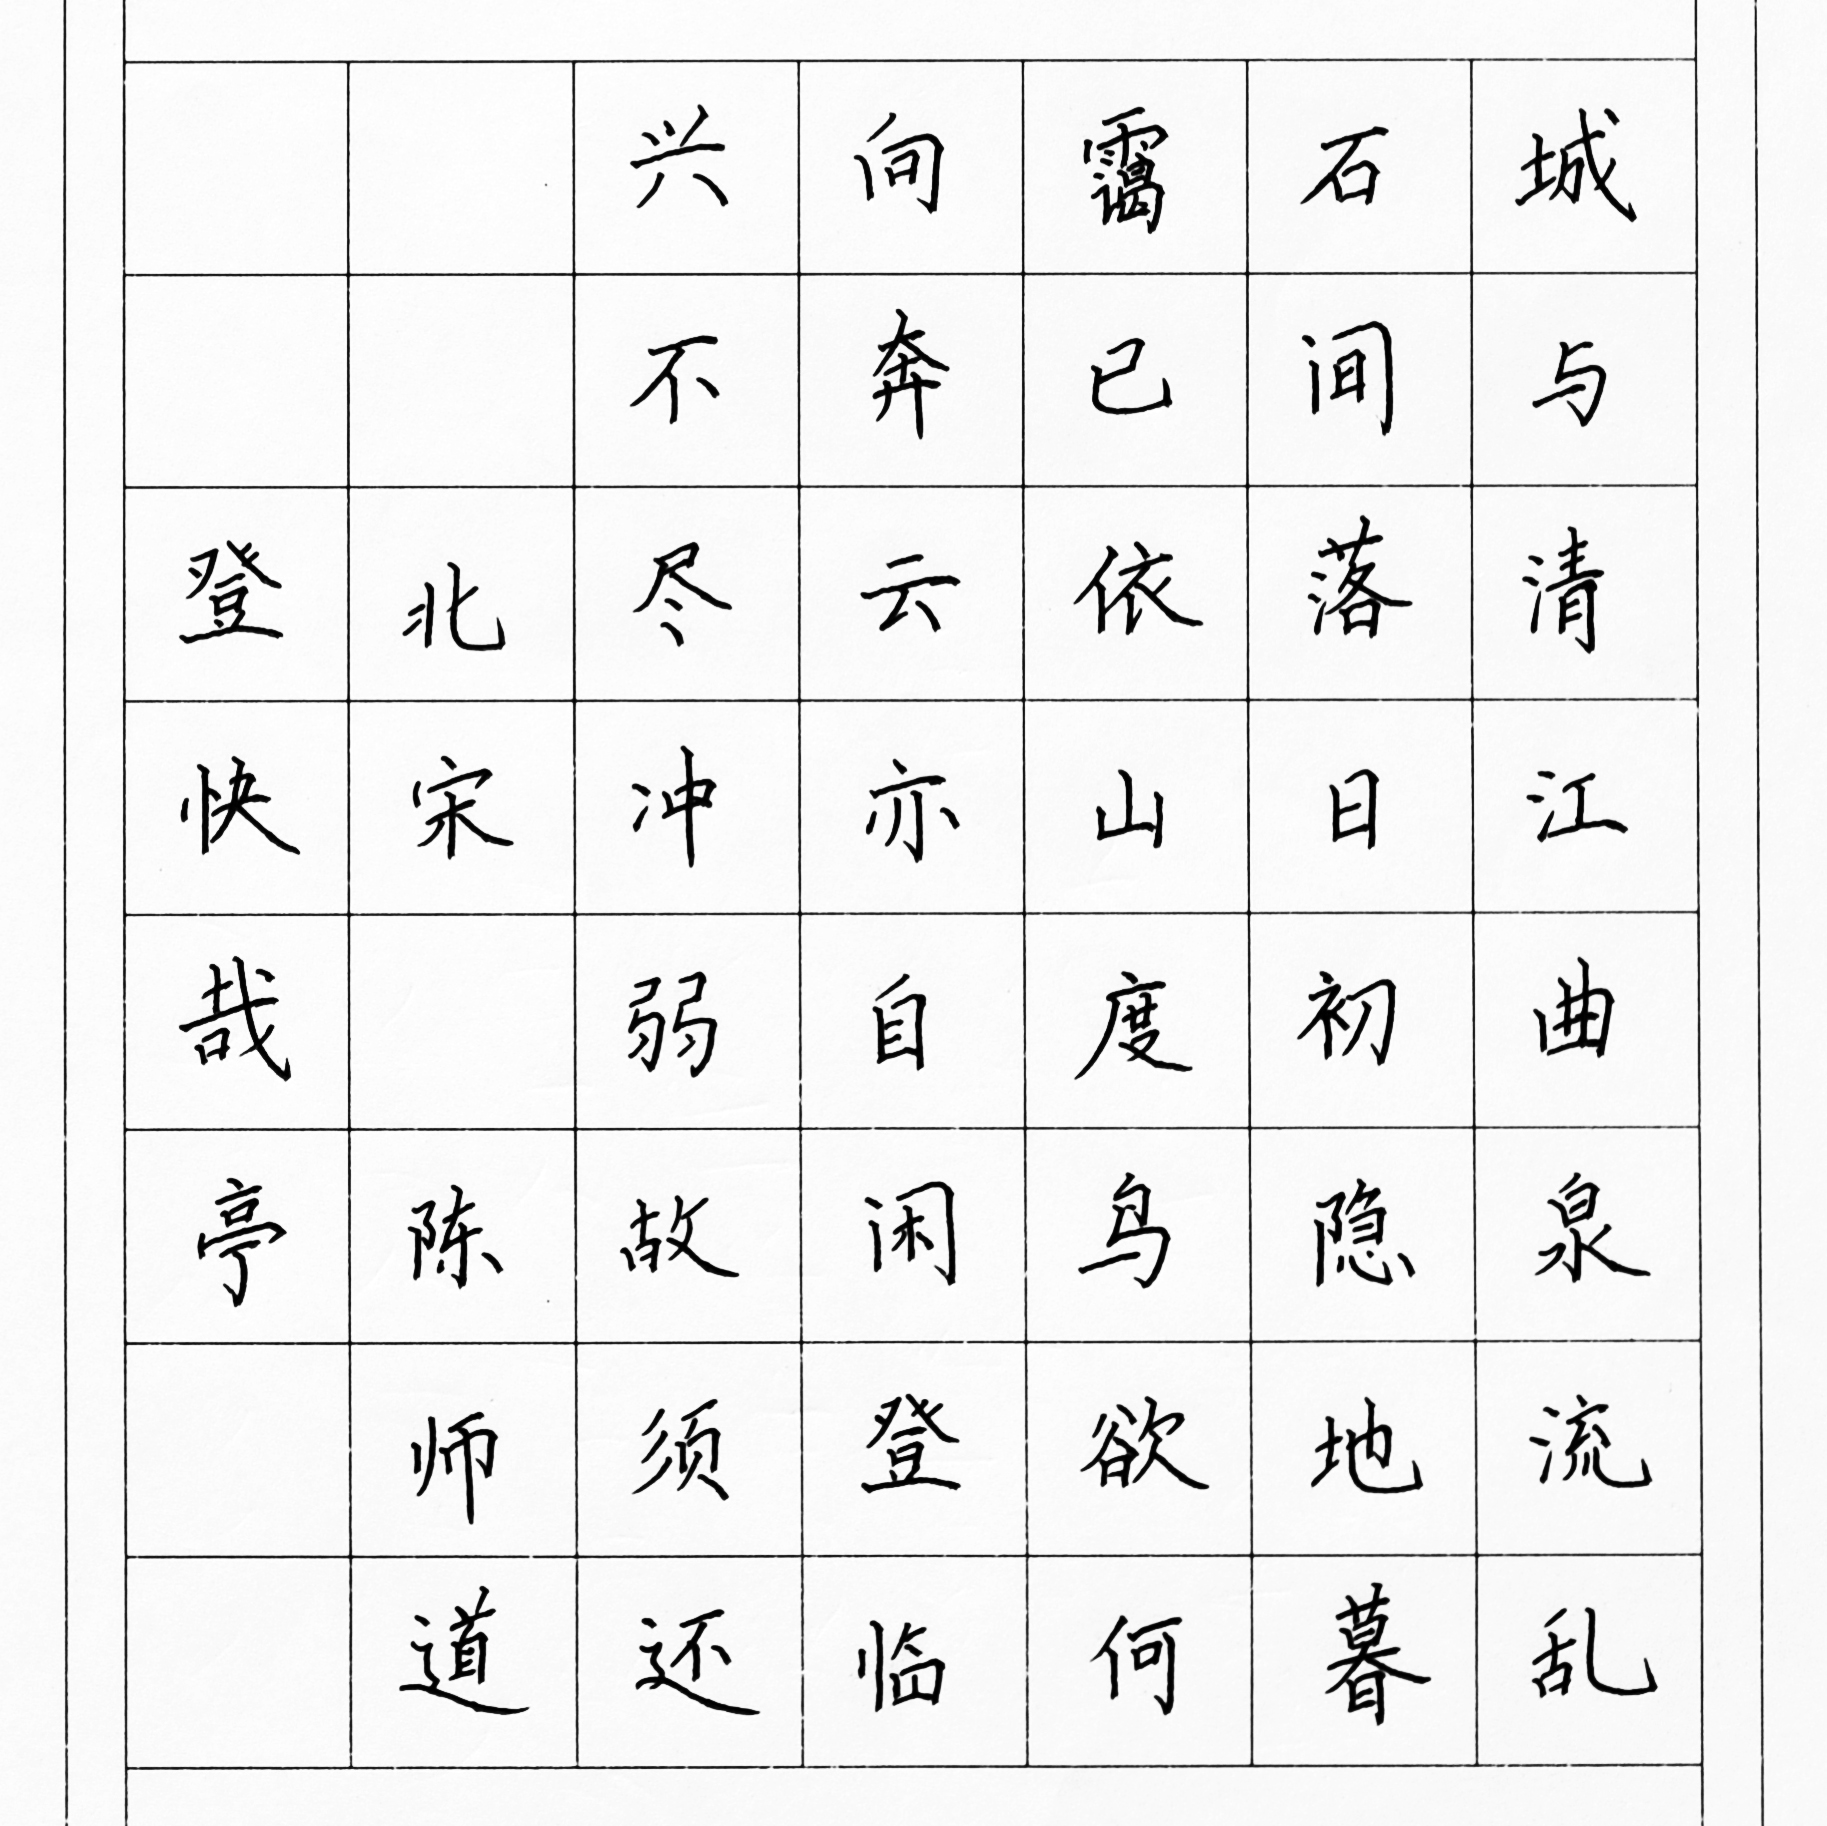 城与清江曲泉流乱
石间落日初隐地暮
霭已依山度鸟欲何
向奔云亦自闲登临
兴不尽冲弱故须还
北宋 陈师道
登快哉亭